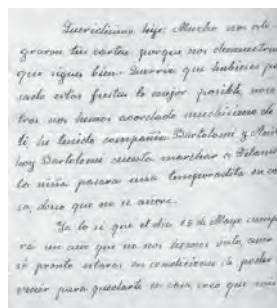 Queridisimo hijo: Mucho nos ale
graron tus cartas porque nos demuestran
que sigues bien. Querria que hubieses pa
sado estas fiestas lo mejor posible, noso
tros nos hemos acordado muchisimo de
ti he tenido compañia Bartolomé y
hoy Bartolomé cuenta marchar a
la niña pasara una temporadita en ca
sa, dono que no se añore.
Ya lo sé que el dia 15 de Mayo cumpli
ra un año que no nos hemos visto,
si pronto estaras en condiciones de poder
venir para quedarte en casa creo que